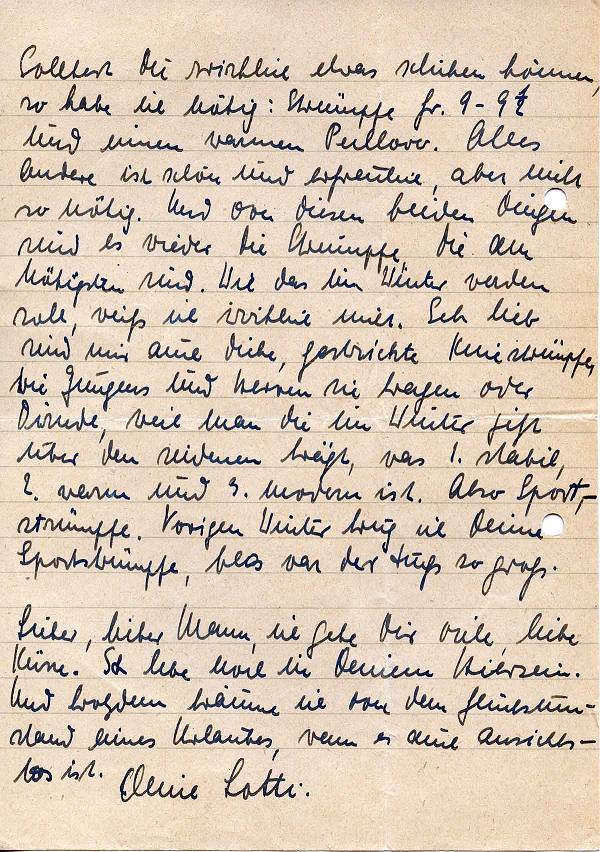 Solltest Du wirklich etwas schicken können,
so habe ich nötig: Strümpfe Gr. 9 - 9½
und einen warmen Pullover. Alles
andere ist schön und erfreulich, aber nicht
so nötig. Und von diesen beiden Dingen
sind es wieder die Strümpfe, die am
nötigsten sind. Wie das im Winter werden
soll, weiß ich wirklich nicht. Sehr lieb
sind mir auch dicke, gestrickte Kniestrümpfe,
wie Jungens und Herren sie tragen oder
Dirndl, weil man die im Winter jetzt
über den seidenen trägt, was 1. stabil,
2. warm und 3. modern ist. Also Sport-
strümpfe. Vorigen Winter trug ich Deine
Sportstrümpfe, blos war der Fuß so groß.
Lieber, lieber Mann, ich gebe Dir viele, liebe
Küsse. Ich lebe noch in Deinem Hiersein.
Und trotzdem träume ich von dem Glückszu-
stand eines Urlaubes, wenn es auch aussichts-
los ist. Deine Lotti.